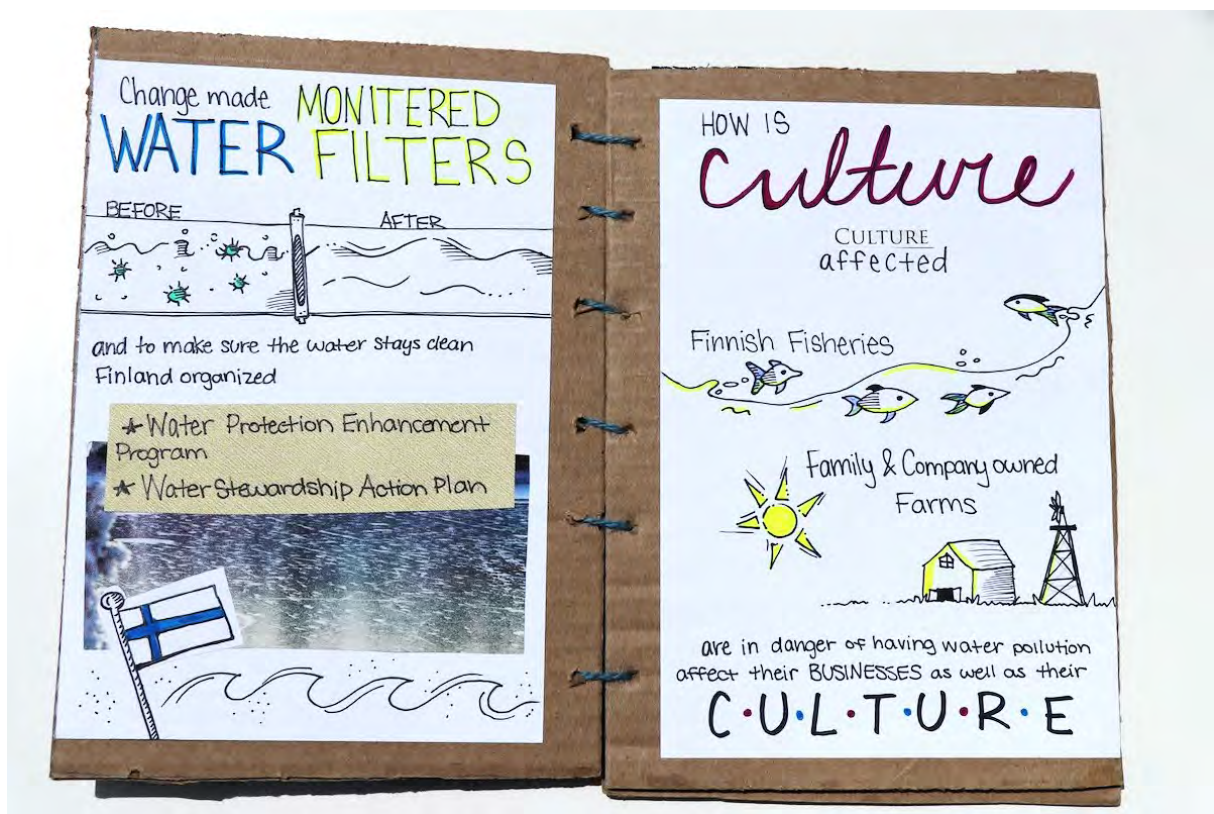 Change made MONITERED
WATER FILTERS
BEFORE
AFTER
and to make sure the water stays clean
Finland organized
★ Water Protection Enhancement
Program
★ Water Stewardship Action Plan
HOW IS
culture
CULTURE
affected
Finnish Fisheries
Family & Company owned
Farms
are in danger of having water pollution
affect their BUSINESSES as well as their
C•U•L•T•U•R•E